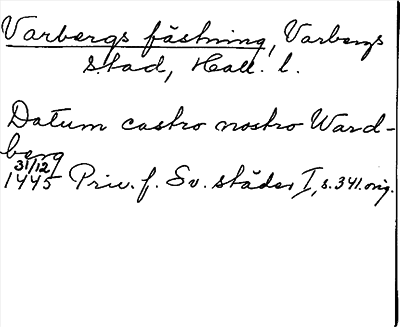 Varbergs fästning, Varbergs
stad, Hall. l.
Datum castro nostro Ward-
berg
31/12
1445 Priv. f. Sv. städer I, s. 341. orig.